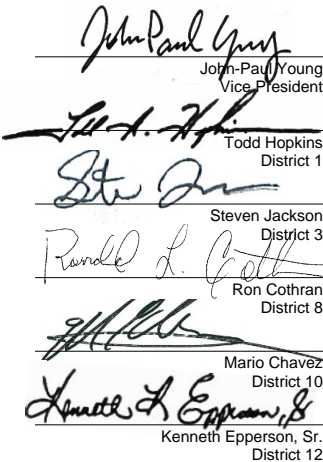 John Paul Young
John-Paul Young
Vice President
Todd Hopkins
District 1
Steven Jackson
District 3
Ronald L. Cothran
Ron Cothran
District 8
Mario Chavez
District 10
Kenneth L Epperson, Sr
Kenneth Epperson, Sr.
District 12